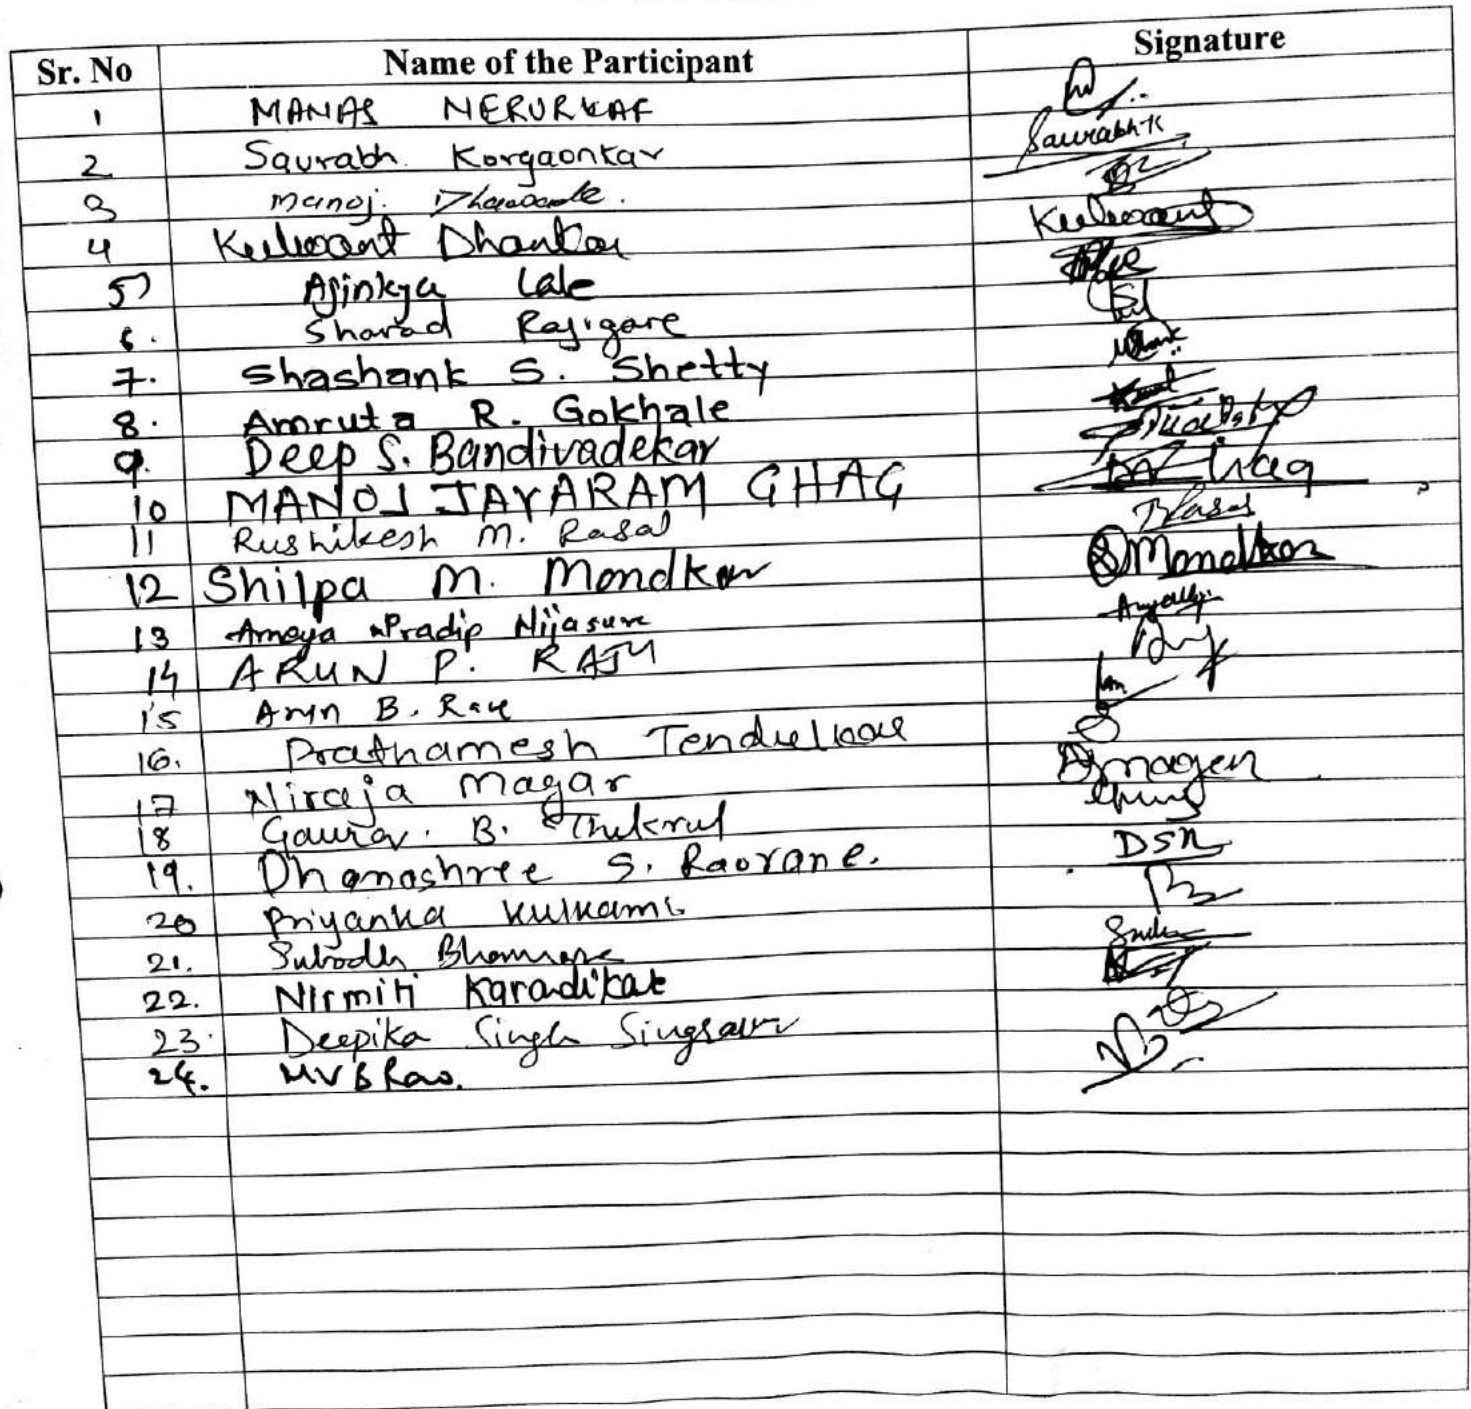 Sr. No Name of the Participant Signature
1 MANAS NERURKAR
2 Saurabh. Korgaonkar Saurabh K
3 Manoj.
4 Kulwant Dhankar Kulwant
5) Ajinkya Lale
6. Sharad Rajigare
7. Shashank S. Shetty
8. Amruta R. Gokhale
9. Deep S. Bandivadekar
10 MANOJ JAYARAM GHAG
11 Rushikesh M. Rasal Rasal
12 Shilpa M. Mondkar Mondkar
13 Ameya Pradip Nijasure
14 ARUN P. RAJU
15 B.
16. Prathamesh Tendulkar
17 Niraja Magar
18 Gaurav. B. Thukrul
19. Dhanashree S. Raorane. DSR
20 Priyanka Kulkarni
21. Subodh Bhamare
22. Nirmiti Karadikar
23. Deepika Singh
24. MVB Rao.